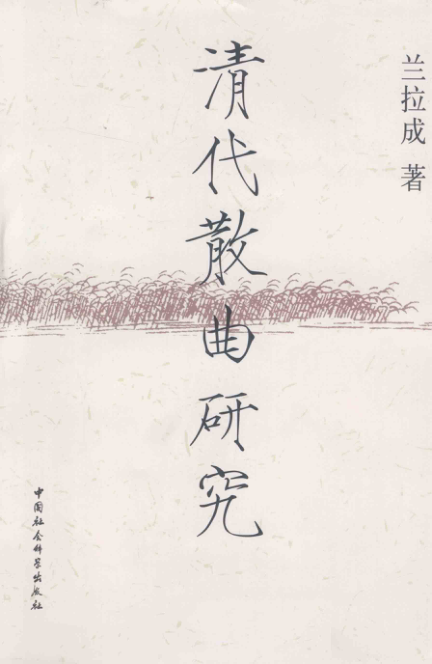 兰拉成 著
清代散曲研究
中国社会科学出版社